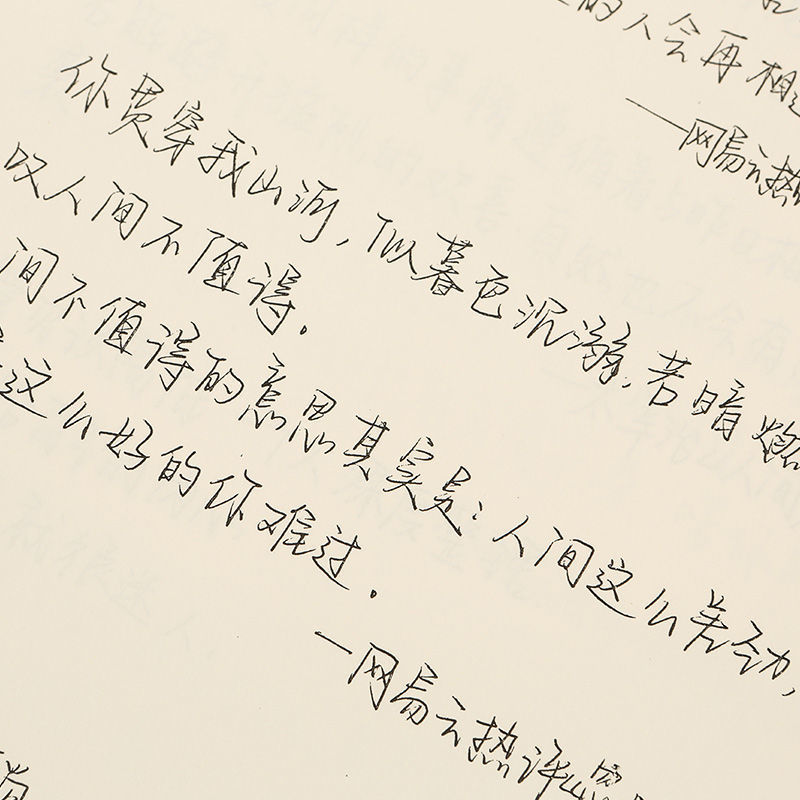 的人会再相
——网易云热
你贯穿我山河,似暮色沉溺,若暗燃
叹人间不值得.
间不值得的意思其实是:人间这么差劲,
这么好的你难过.
—网易云热评